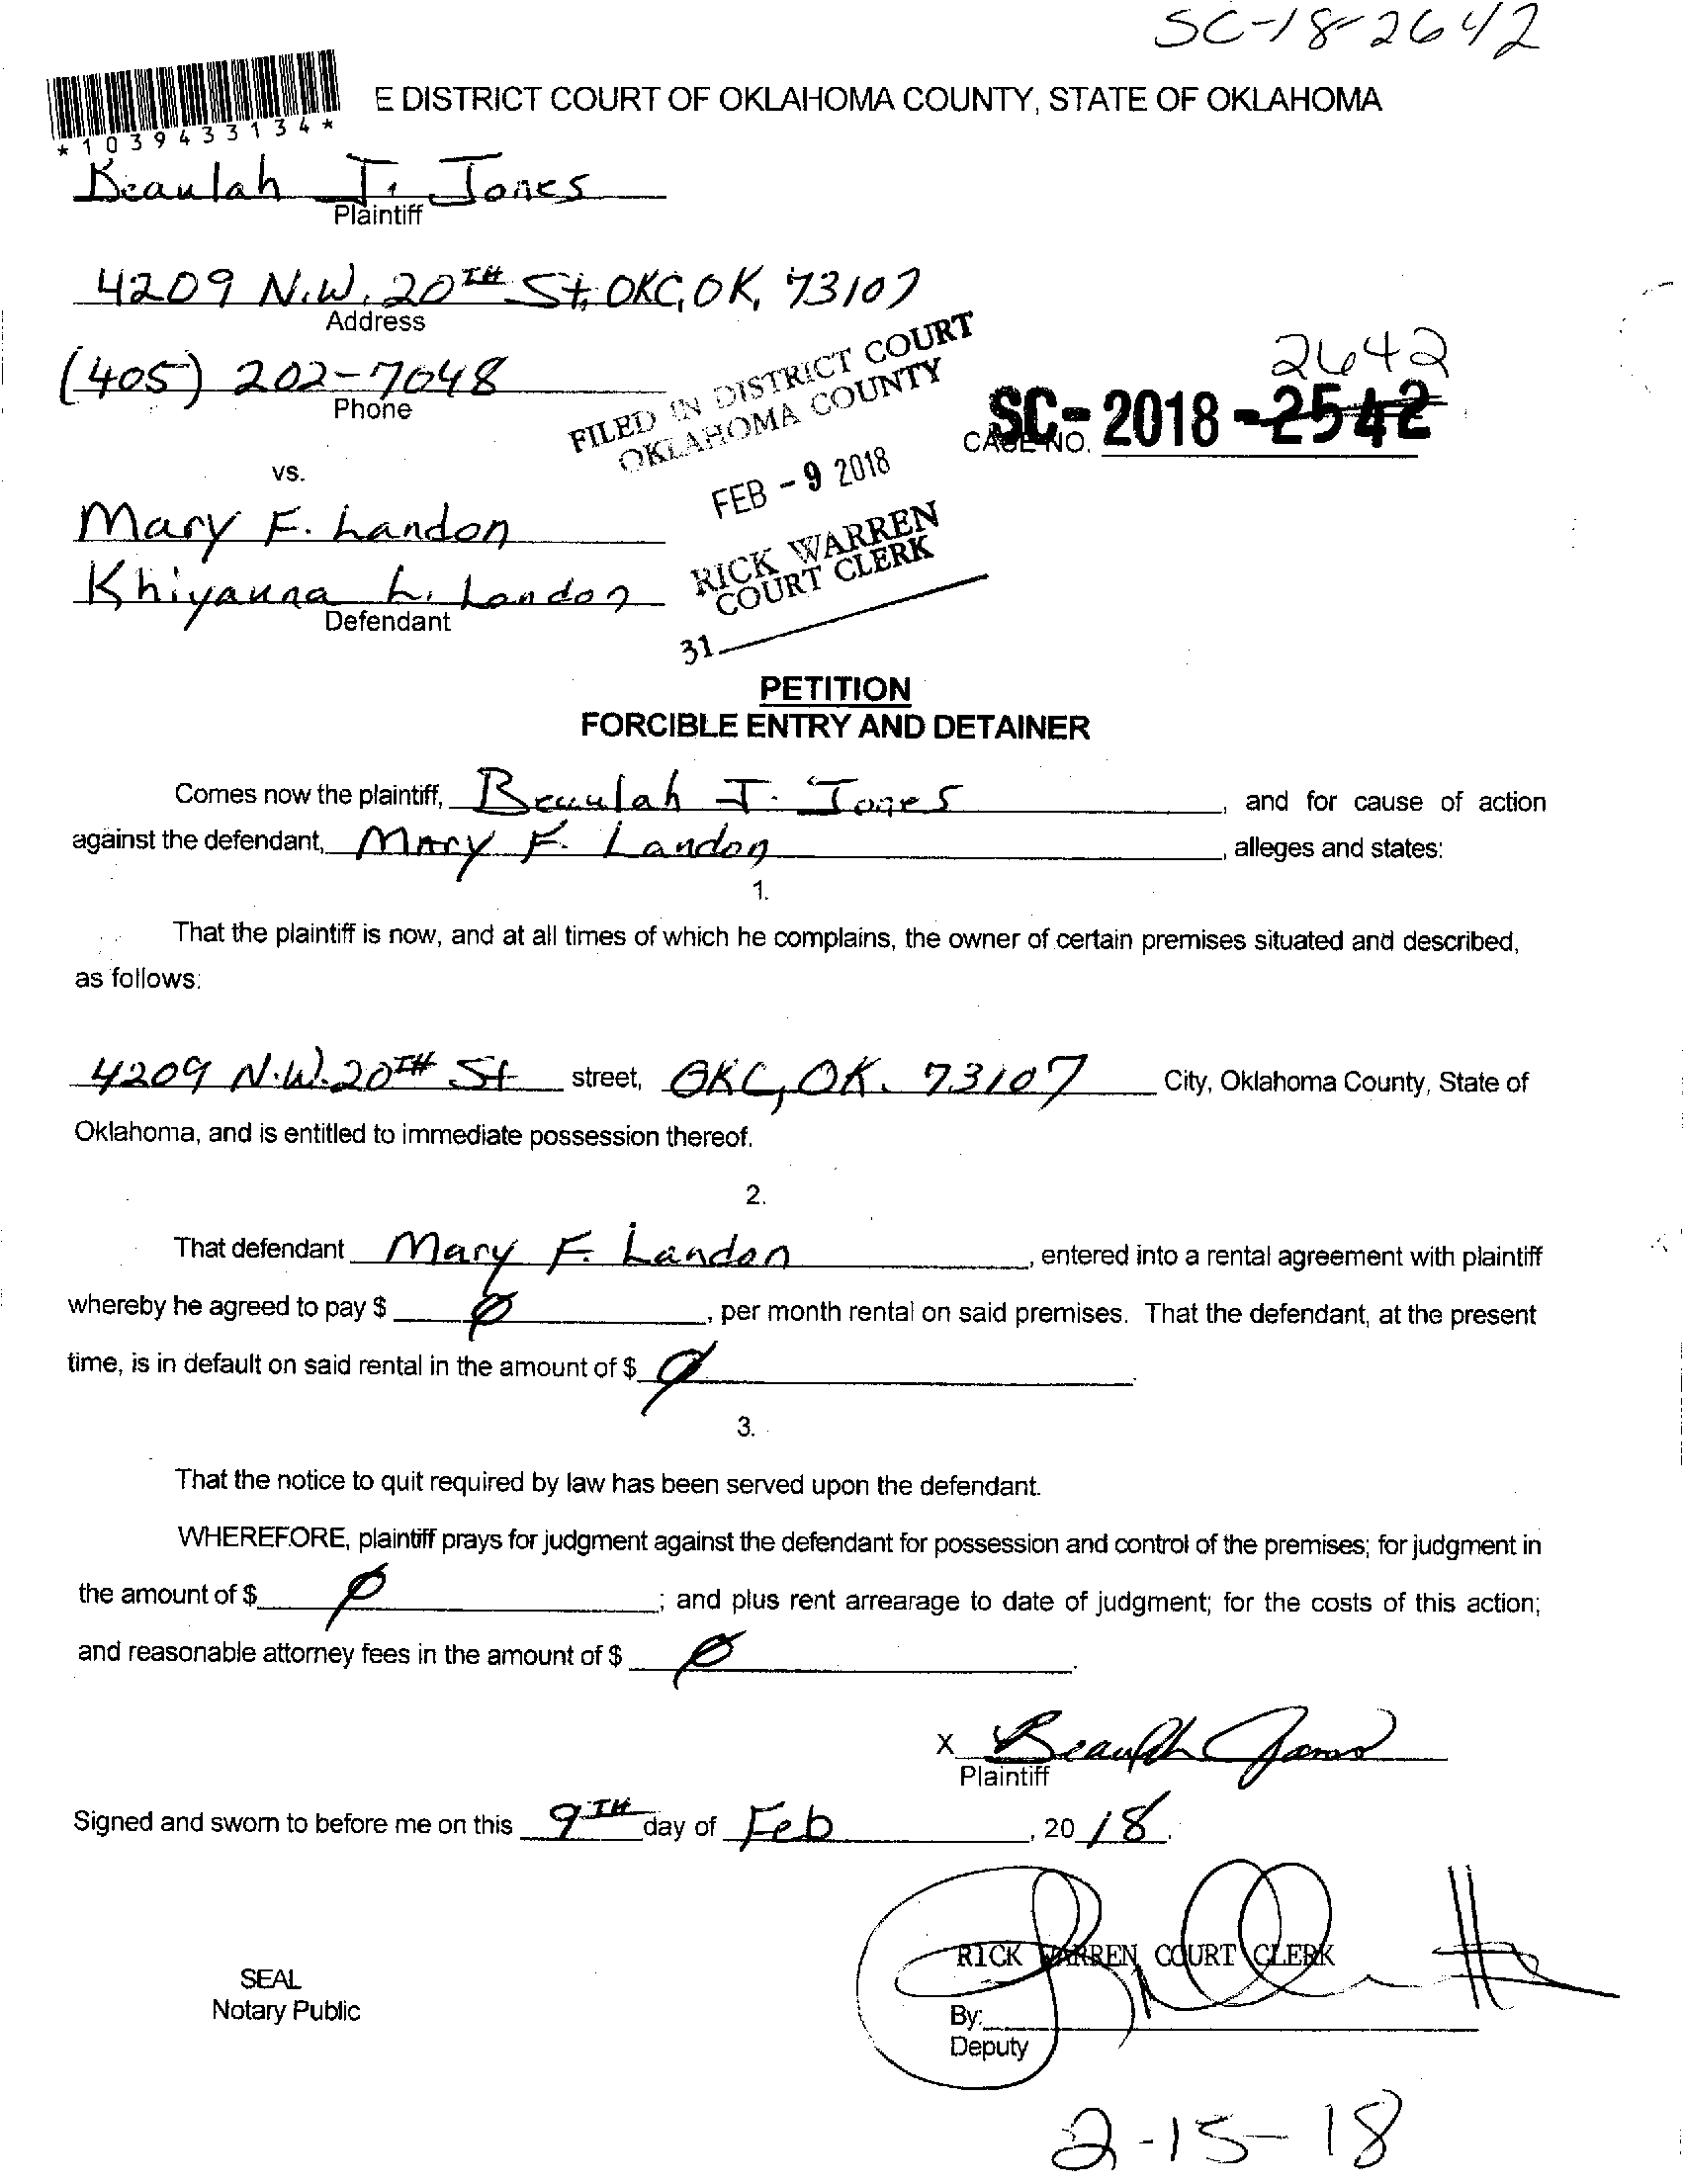 SC-18-2642
E DISTRICT COURT OF OKLAHOMA COUNTY, STATE OF OKLAHOMA
*1039433134*
Beaulah J. Jones
Plaintiff
4209 N.W. 20TH St, OKC, OK, 73107
Address
(405) 202-7048
Phone
FILED IN DISTRICT COURT
OKLAHOMA COUNTY
FEB - 9 2018
RICK WARREN
COURT CLERK
31
2642
CASE NO. SC-2018-2542
vs.
Mary F. Landon
Khiyauna L. Landon
Defendant
PETITION
FORCIBLE ENTRY AND DETAINER
Comes now the plaintiff, Beaulah J. Jones, and for cause of action
against the defendant, Mary F. Landon, alleges and states:
1.
That the plaintiff is now, and at all times of which he complains, the owner of certain premises situated and described,
as follows:
4209 N.W. 20TH St street, OKC, OK. 73107 City, Oklahoma County, State of
Oklahoma, and is entitled to immediate possession thereof.
2.
That defendant Mary F. Landon, entered into a rental agreement with plaintiff
whereby he agreed to pay $ Ø, per month rental on said premises. That the defendant, at the present
time, is in default on said rental in the amount of $ Ø.
3.
That the notice to quit required by law has been served upon the defendant.
WHEREFORE, plaintiff prays for judgment against the defendant for possession and control of the premises; for judgment in
the amount of $ Ø; and plus rent arrearage to date of judgment; for the costs of this action;
and reasonable attorney fees in the amount of $ Ø.
X Beaulah Jones
Plaintiff
Signed and sworn to before me on this 9TH day of Feb, 2018.
RICK WARREN, COURT CLERK
SEAL
Notary Public
By:
Deputy
2-15-18